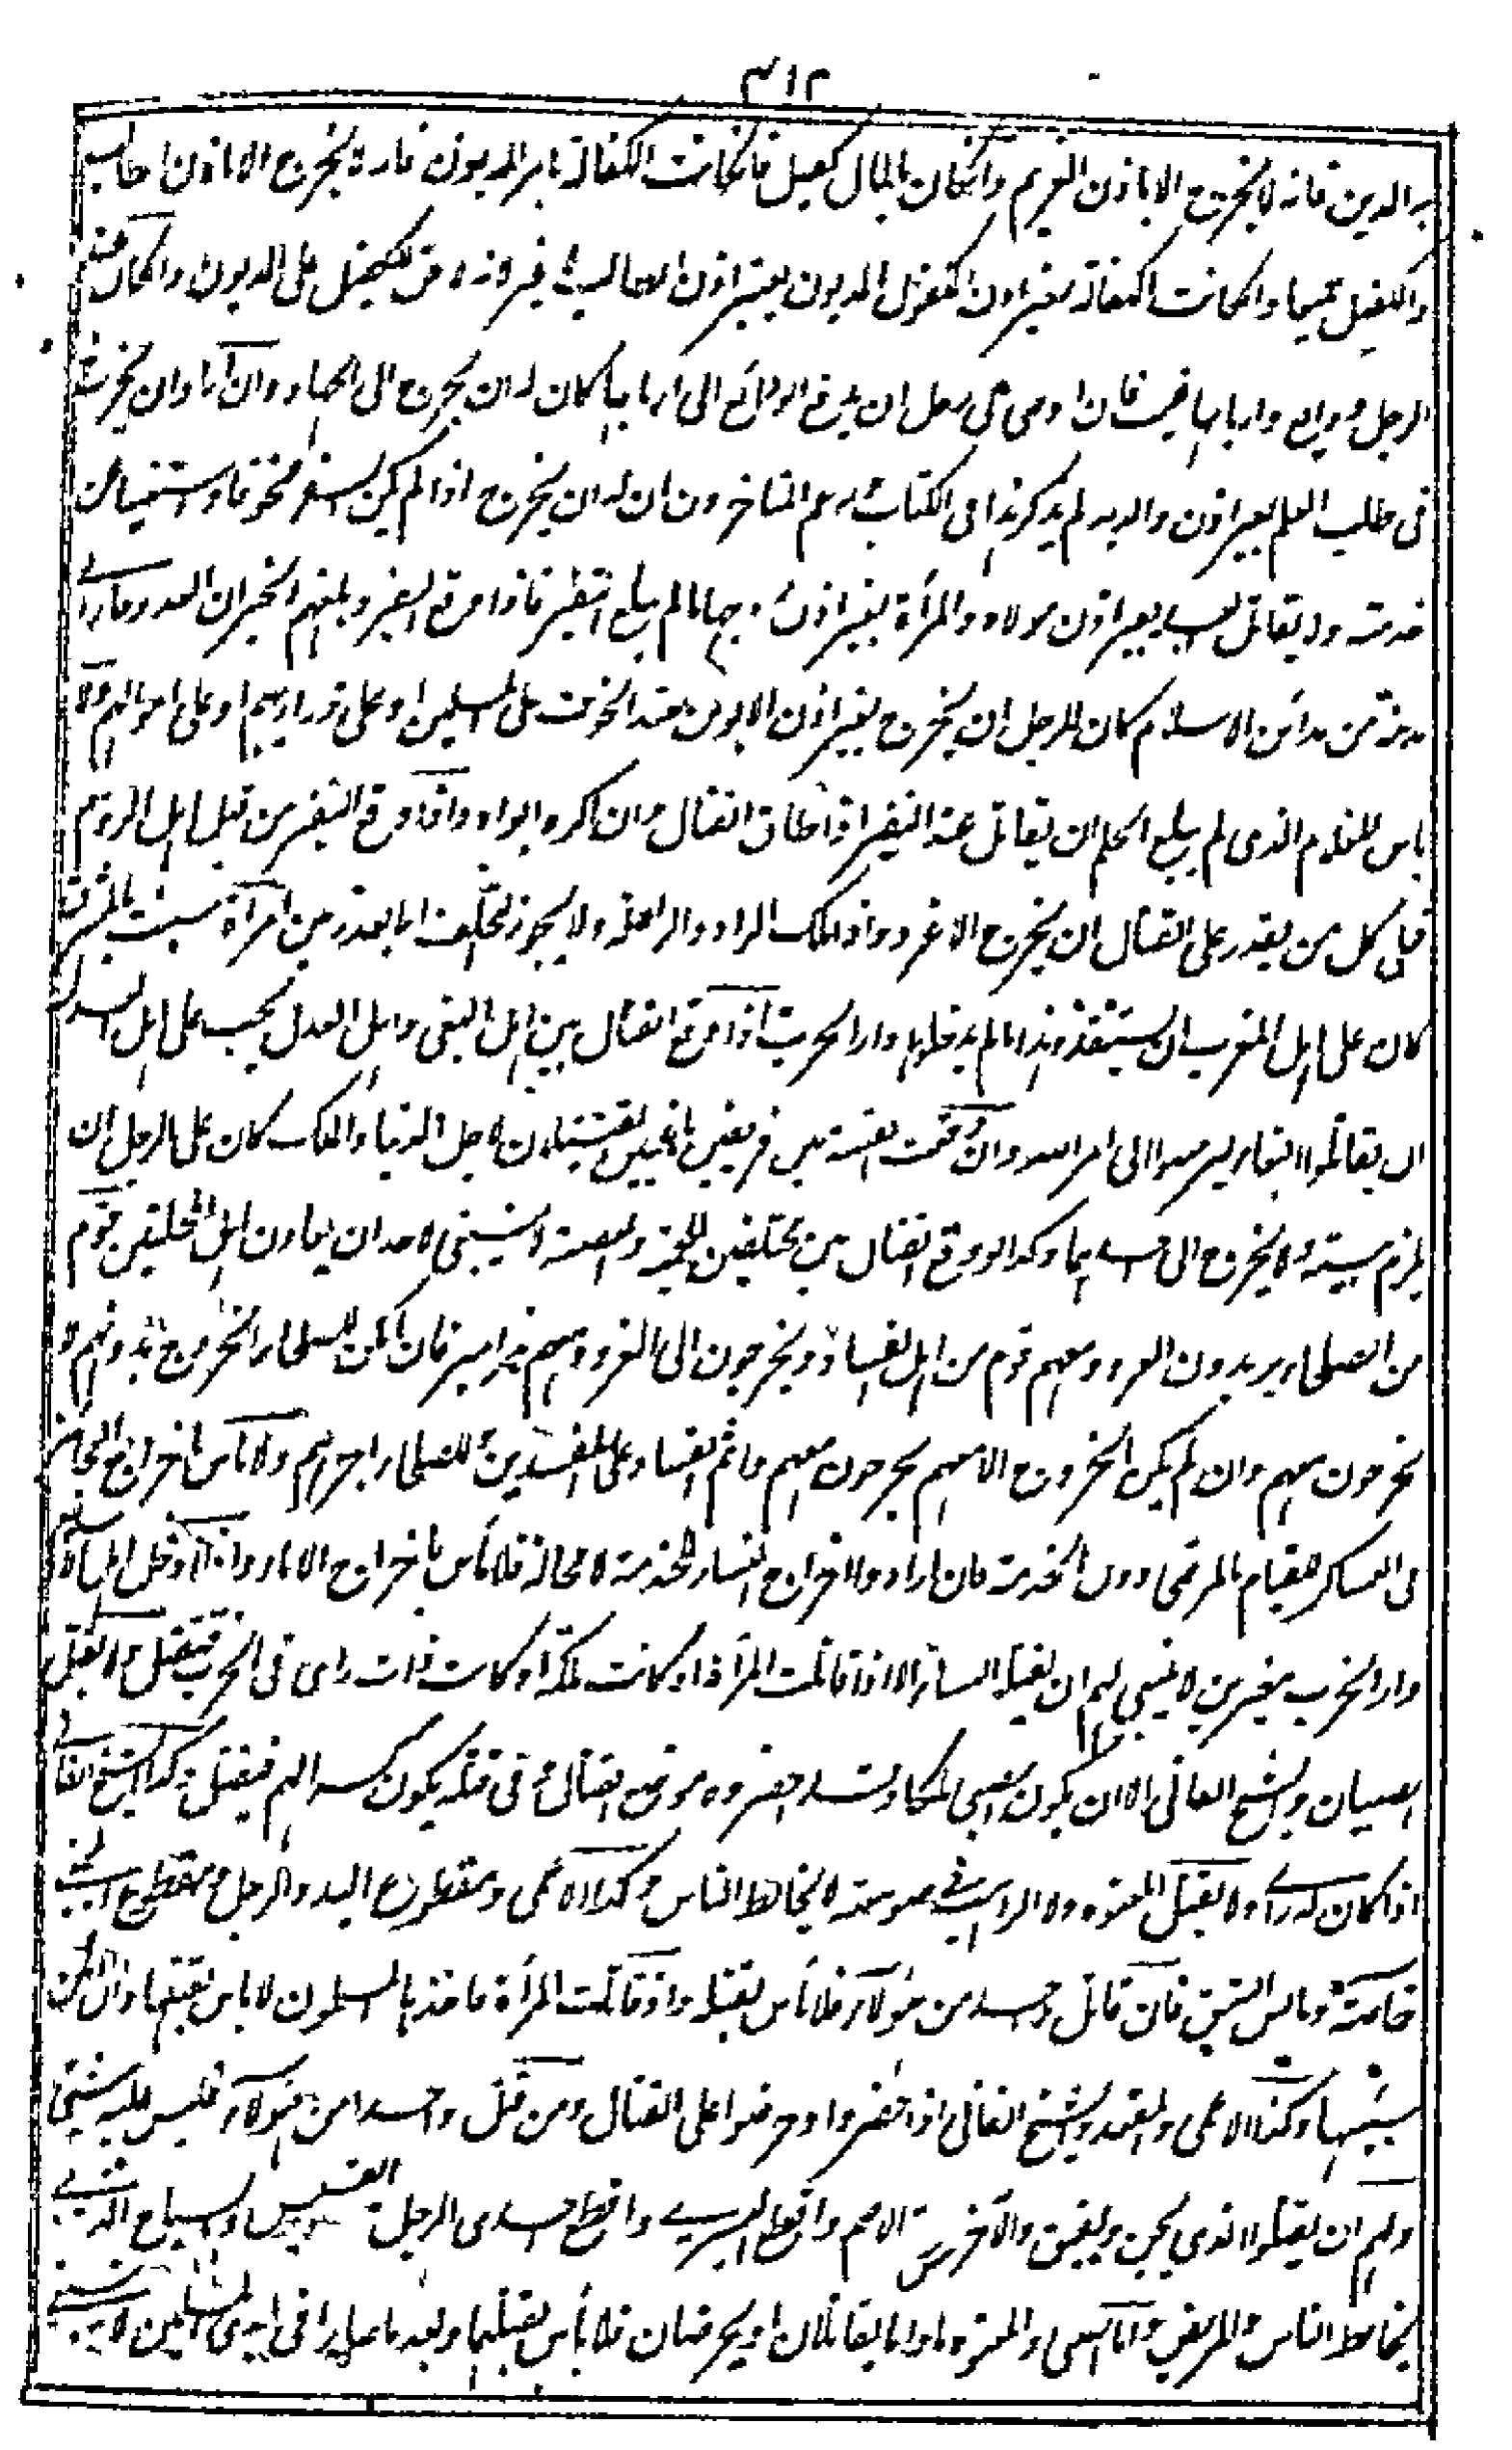 ٣١٢
به الدين فانه لا يخرج الا باذن الغريم وان كان بالمال كفيل فان كانت الكفالة بامر المديون فاراد يخرج الا باذن
والكفيل جميعا وان كانت الكفالة بغير اذن المكفول المديون يعتبر اذن الطالب غير لانه لا حق للكفيل على المديون وان كان عند
الرجل ودائع واربابها غيب فان اوصى الى رجل ان يدفع الودائع الى اربابها كان له ان يخرج الى الجهاد وان اراد ان يخرج
فى طلب العلم بغير اذن والديه لم يذكر هذا فى الكتاب زعم المتاخرون ان له ان يخرج اذا لم يكن السفر مخوفا واستغنيا عن
خدمته ولا يقاتل العبد بغير اذن مولاه والمرأة بغير اذن زوجها ما لم يبلغ النفير فاذا وقع النفير وبلغهم الخبر ان العدو جاء الى
مدينة من مدائن الاسلام كان للرجل ان يخرج بغير اذن الابوين عند الخوف على المسلمين او على ذراريهم او على اموالهم ولا
باس للغلام الذى لم يبلغ الحلم ان يقاتل عند النفير اذا طاق القتال وان كره ابواه واذا وقع النفير من قبل اهل الروم
فعلى كل من يقدر على القتال ان يخرج الى الغزو واذا ملك الزاد والراحلة ولا يجوز التخلف الا بعذر بين امرأة سبيت بالمشرق
كان على اهل المغرب ان يستنقذوها ما لم يدخلوها دار الحرب اذا وقع القتال بين اهل البغى واهل العدل يجب على اهل العدل
ان يقاتلوا البغاة ليرجعوا الى امر الله وان وقعت الفتنة بين فريقين باغيين يقتتلان لاجل الدنيا والملك كان على الرجل ان
يلزم بيته ولا يخرج الى احدهما وكذا لو وقع القتال بين محلتين للحمية والعصبة لا ينبغى لاحد ان يعاون اهل المحلتين قوم
من الصلحاء يريدون الغزو ومعهم قوم من اهل الفساد ويخرجون الى الغزو ومعهم مزامير فان امكن للصلحاء الخروج بدونهم لا
يخرجون معهم وان لم يكن الخروج الا معهم يخرجون معهم واثم الفساد على المفسدين وللصلحاء اجرهم ولا بأس باخراج العجائز
فى العساكر للقيام بالمرضى دون الخدمة فان ارادوا اخراج النساء للخدمة لا محالة فلا بأس باخراج الاماء واذا دخل المسلمون
دار الحرب مغيرين لا ينبغى لهم ان يقتلوا النساء الا اذا قاتلت المرأة او كانت ملكة او كانت ذات راى فى الحرب فتقتل ولا يقتل
الصبيان والشيخ الفانى الا ان يكون الصبى ملكا وقد احضروه موضع القتال وفى قتله يكون كسرا لهم فيقتل وكذا الشيخ الفانى
اذا كان له راى ولا يقتل المعتوه ولا الراهب فى صومعته لا يخالط الناس وكذا الاعمى ومقطوع اليد والرجل ومقطوع اليمنى
خاصة ويابس الشق فان قاتل واحد من هؤلاء فلا بأس بقتله واذا قاتلت المرأة فاخذها المسلمون لا باس بقتلها وان امكن
سبيها وكذا الاعمى والمقعد والشيخ الفانى اذا حضروا وحرضوا على القتال ومن قتل واحدا من هؤلاء فليس عليه شىء
ولهم ان يقتلوا الذى يجن ويفيق والاخرس والاصم واقطع اليسرى واقطع احدى الرجلين والقسيس والسياح الذى
يخالط الناس والمريض واما الصبى والمعتوه ما داما يقاتلان او يحرضان فلا بأس بقتلهما وبعد ما صارا فى ايدى المسلمين لا ينبغى